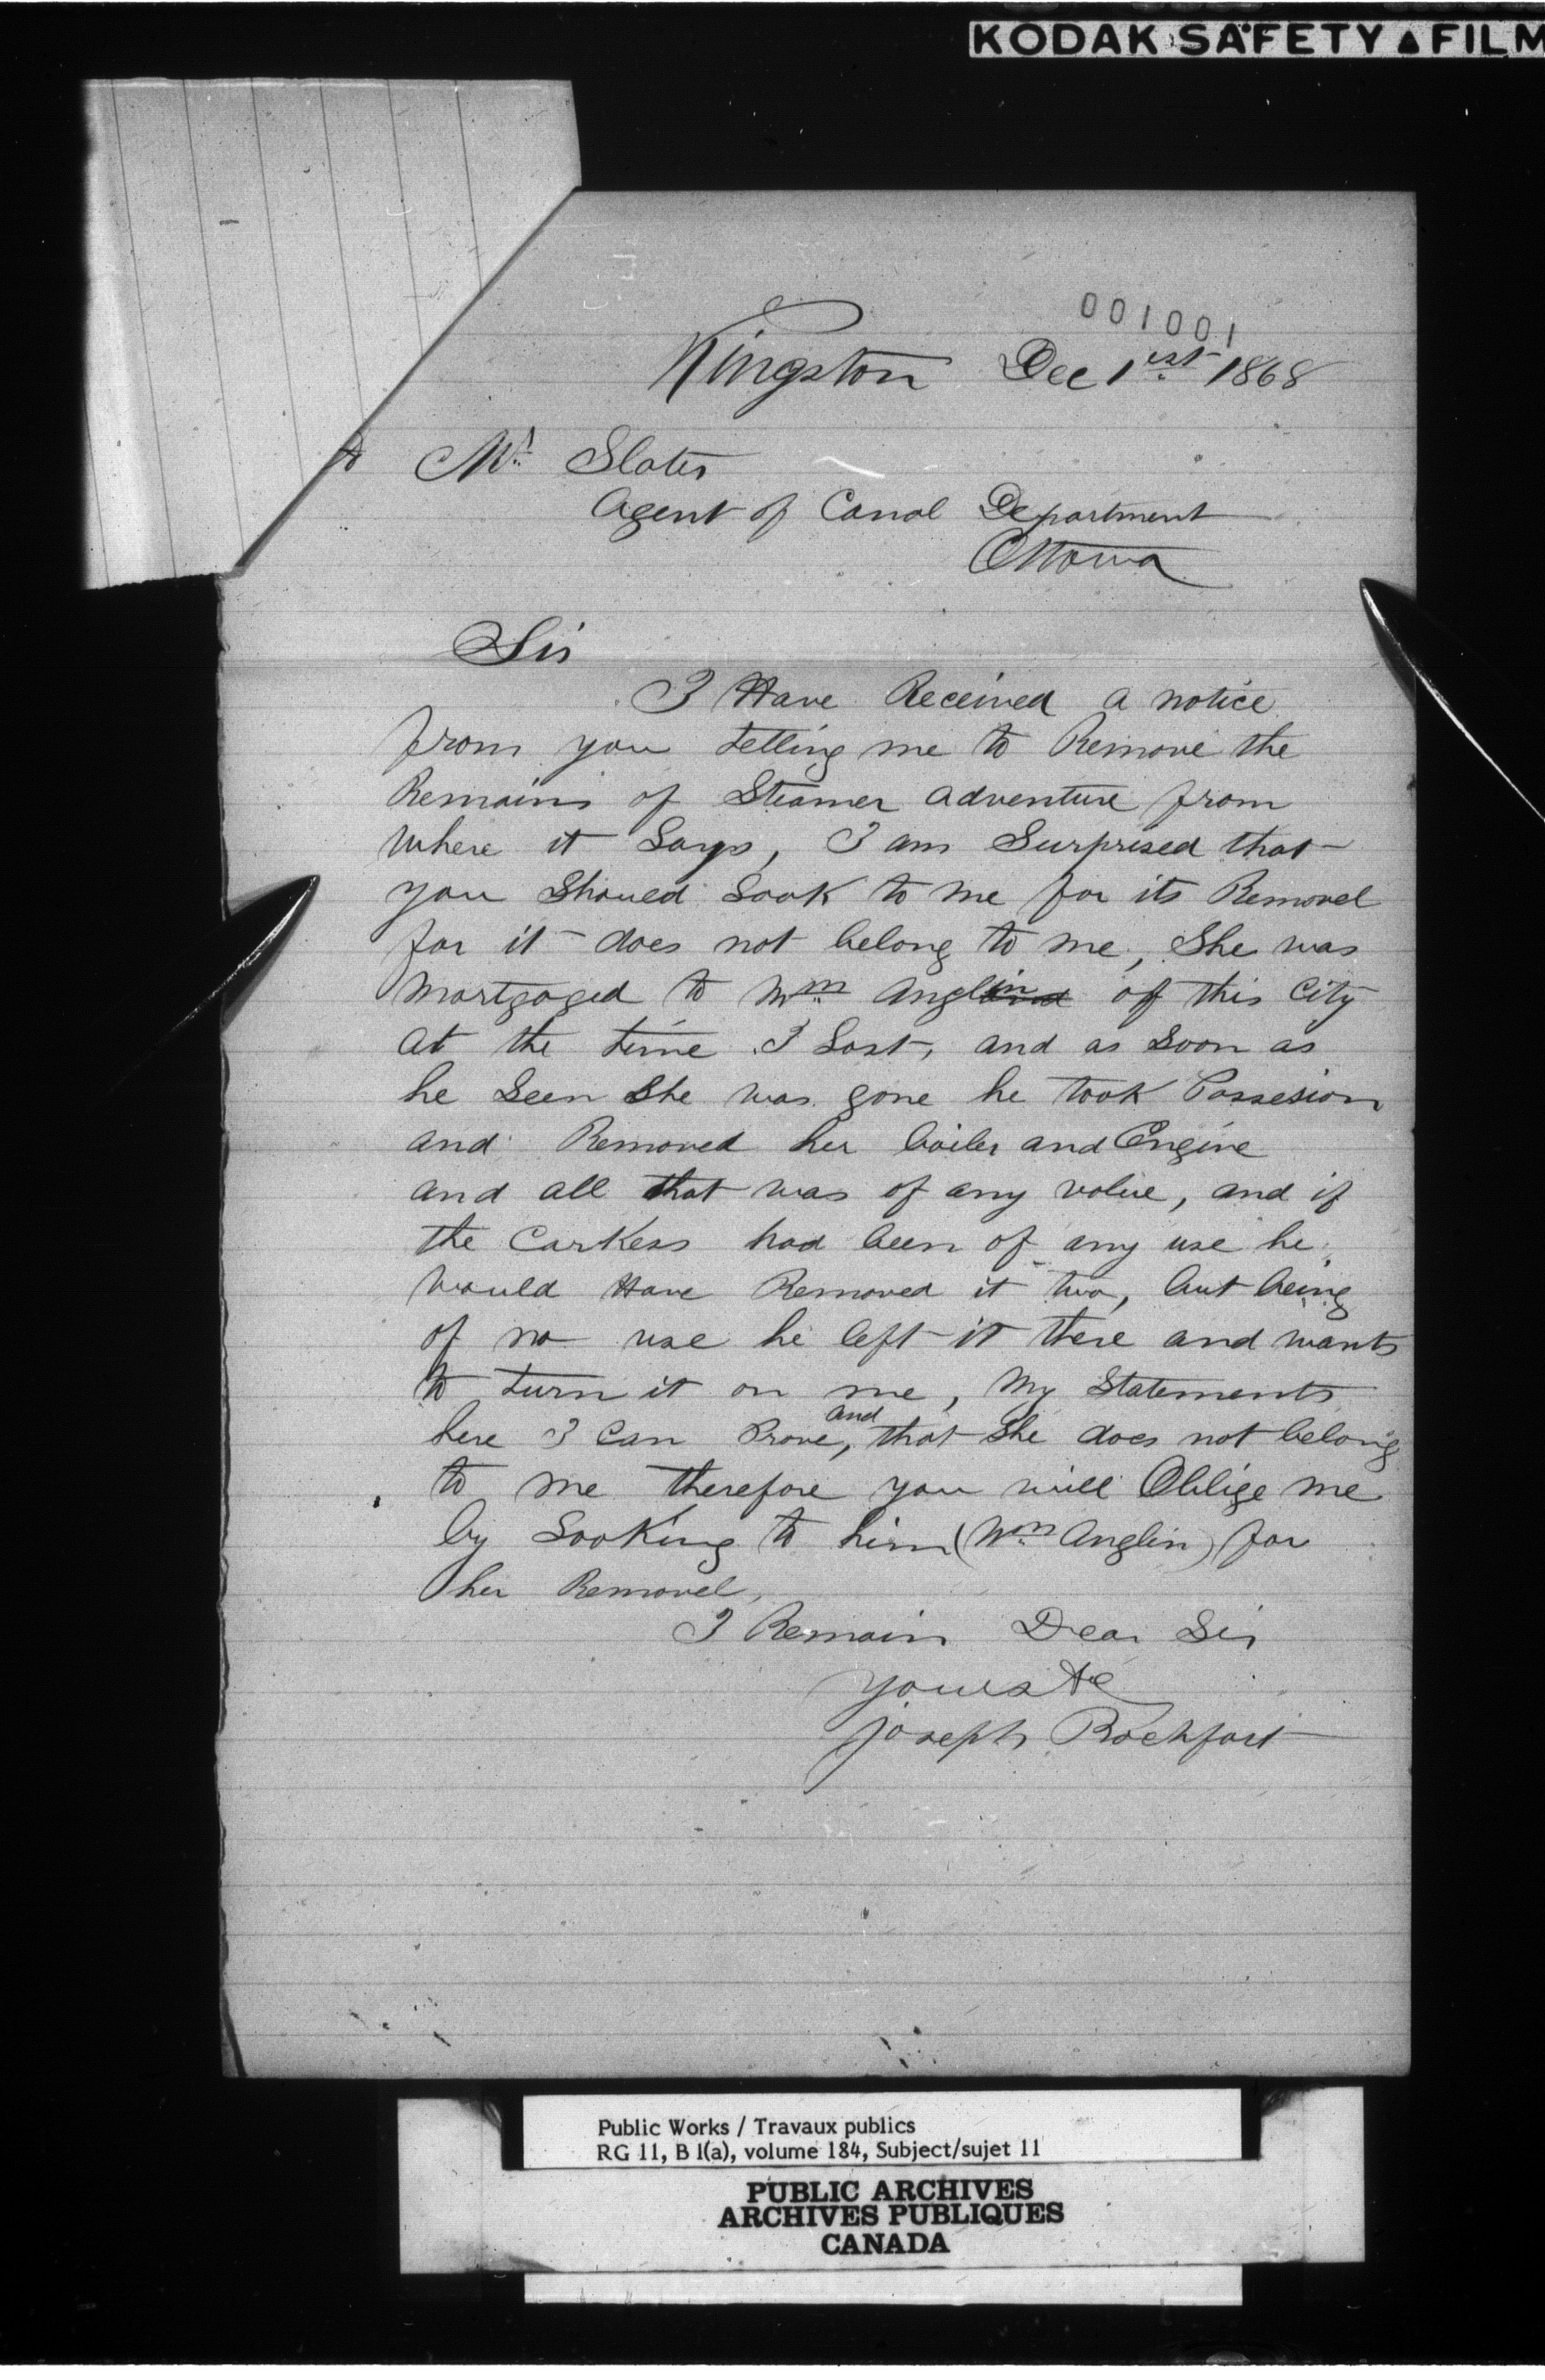 KODAK SAFETY FILM
001001
Kingston Dec 1st 1868
to Mr Slater
Agent of Canal Department
Ottawa
Sir
I Have Received a notice
from you telling me to Remove the
Remains of Steamer Adventure from
where it Lays, I am Surprised that
you Should Look to me for its Removel
for it does not belong to me, She was
Mortgaged to Wm Anglin of this City
at the time I Lost, and as Soon as
he Seen She was gone he took Possesion
and Removed her boiler and Engine
and all that was of any value, and if
the Carkess had been of any use he
would Have Removed it two, but being
of no use he left it there and wants
to turn it on me, My Statements
here I Can Prove, and that She does not belong
to me therefore you will Oblige me
by Looking to him (Wm Anglin) for
her Removel,
I Remain Dear Sir
Yours &c
Joseph Rochfort
Public Works / Travaux publics
RG 11, B 1(a), volume 184, Subject/sujet 11
PUBLIC ARCHIVES
ARCHIVES PUBLIQUES
CANADA